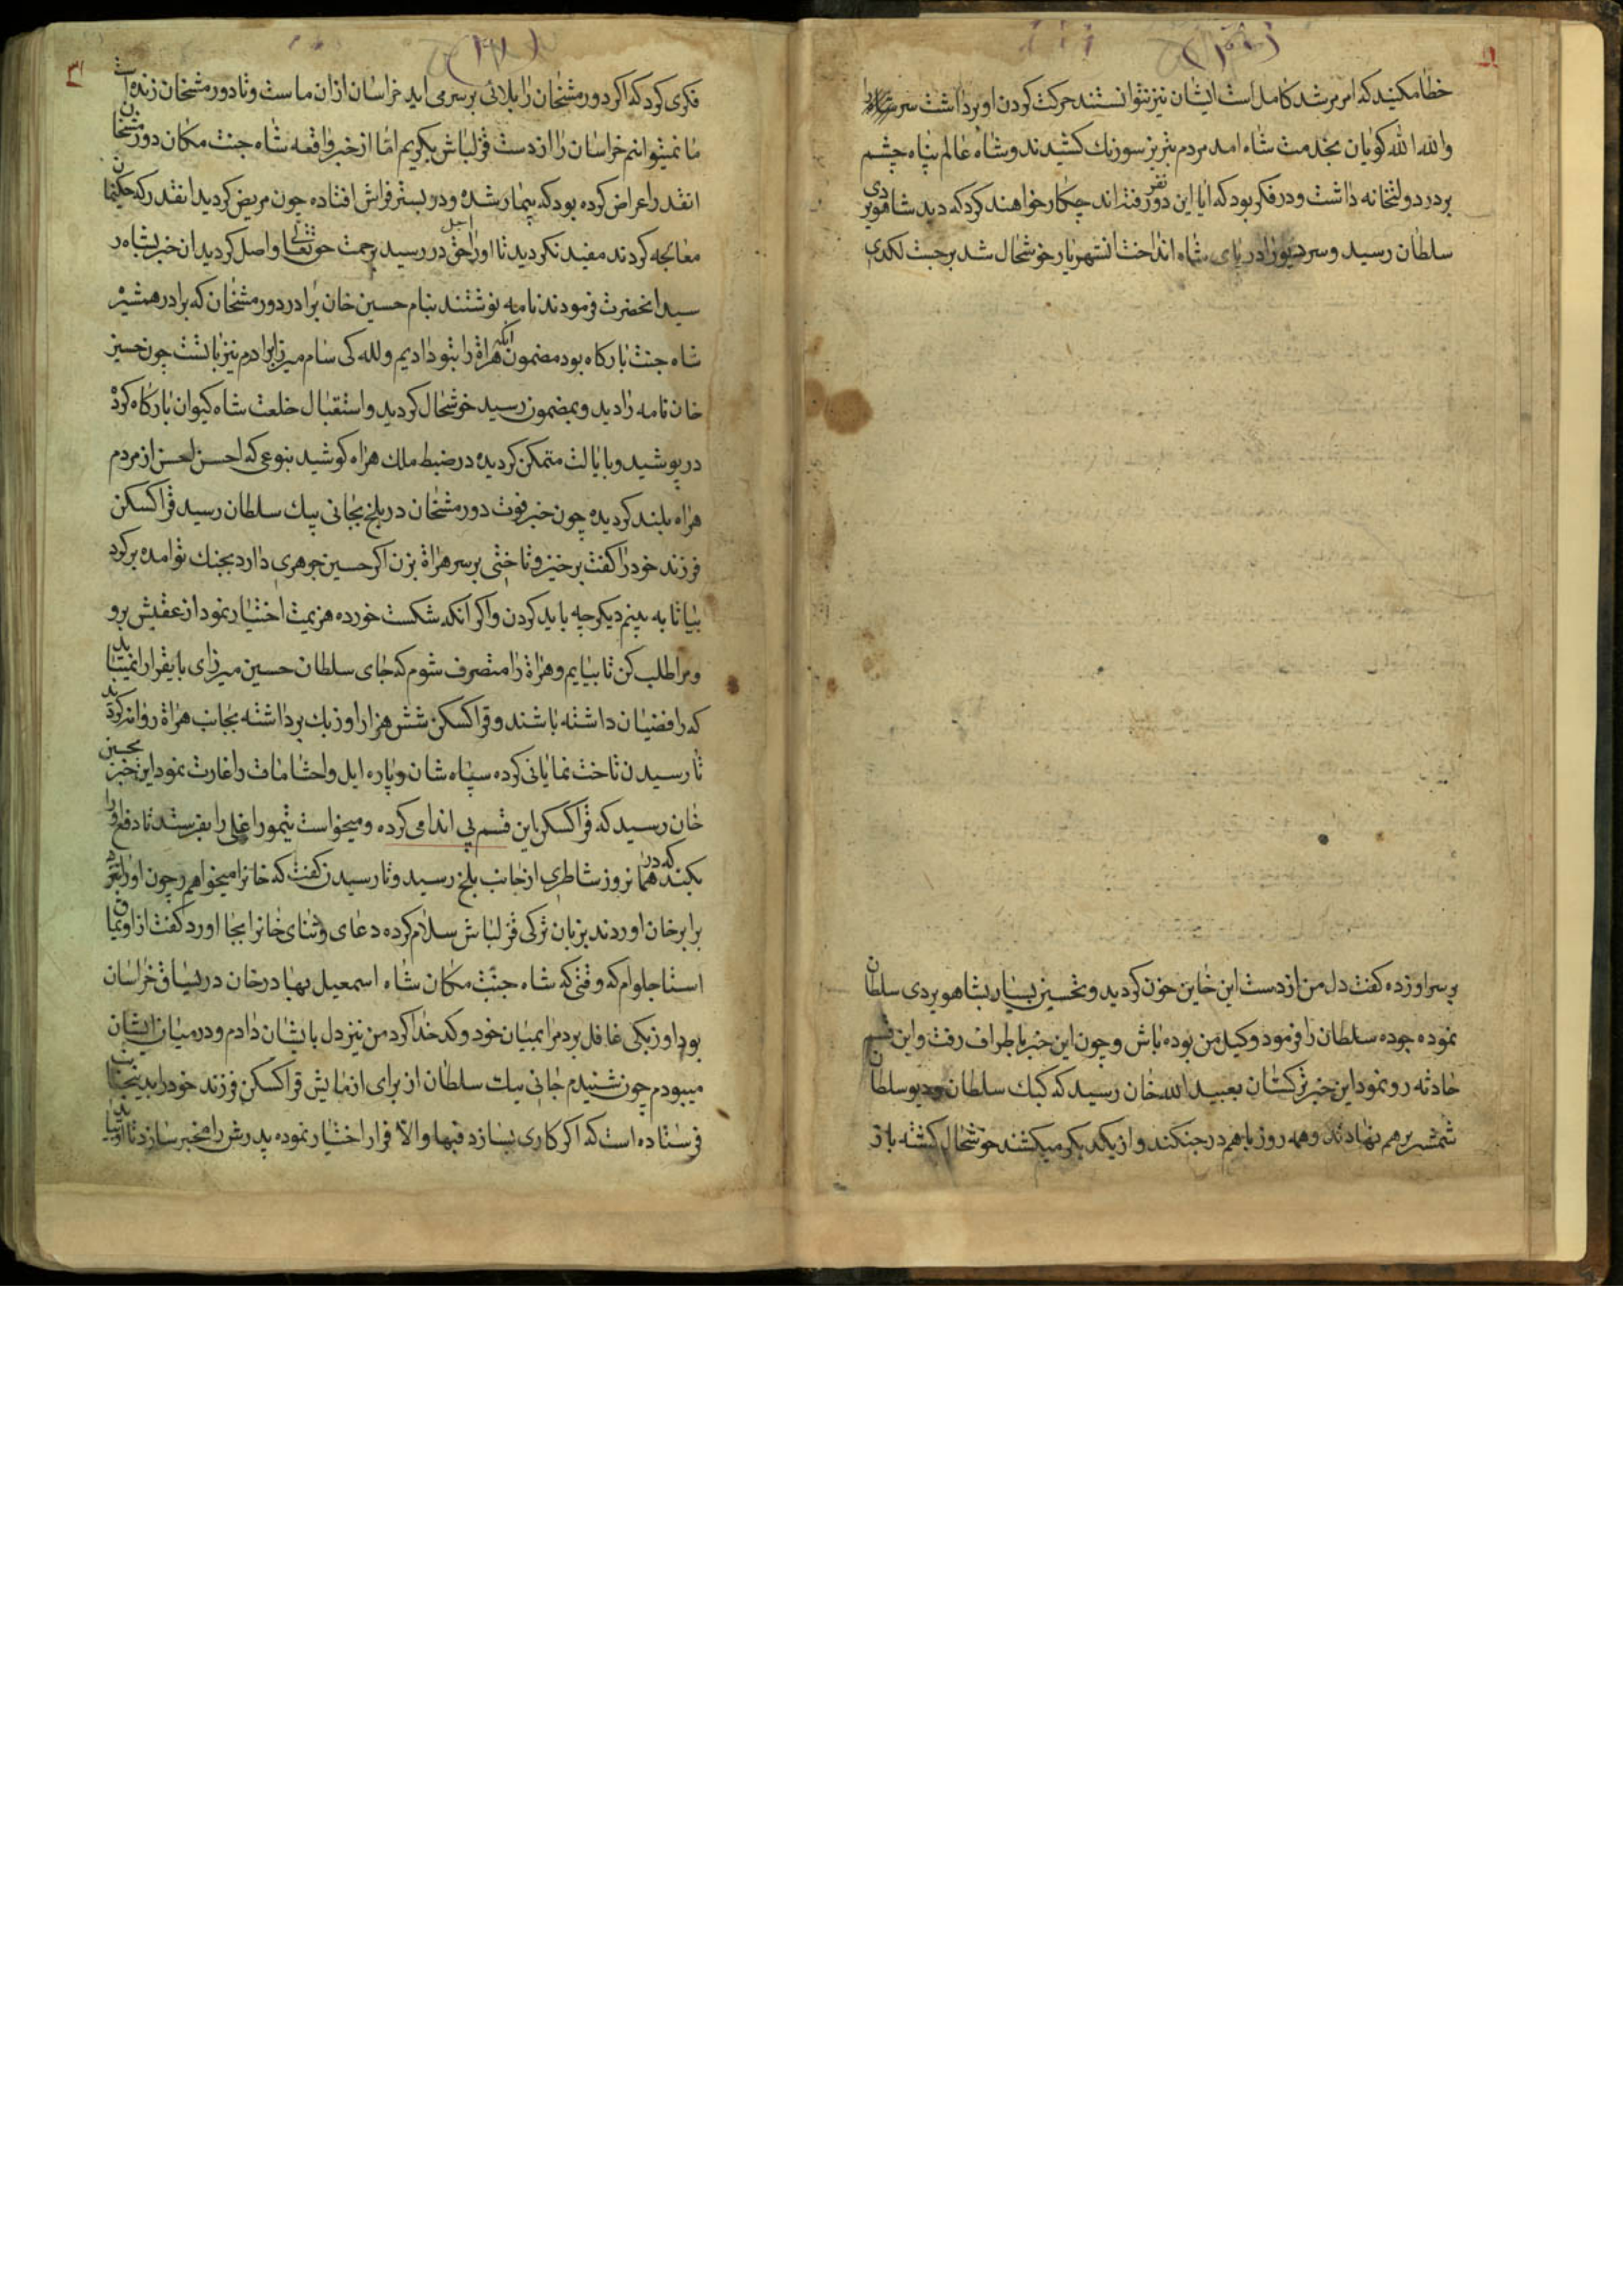 خطا مکنید که امر مرشد کامل است ایشان نیز نتوانستند حرکت کردن او برداشت سر
والله الله کویان بخدمت شاه امد مردم تبریز سورنک کشیدند و شاه عالم پناه چشم
بر در دولتخانه داشت و در فکر بود که ایا این دو نفر رفته اند چکار خواهند کرد که دید شاهویردی
سلطان رسید و سر دیو را در پای شاه انداخت انشهریار خوشحال شد برجست لکدی
بر سر او زده کفت دل من از دست این خاین خون کردید و تحسین بسیار بشاهویردی سلطان
نموده جوده سلطان را فرمود وکیل من بوده باش و چون این خبر باطراف رفت و این قسم
حادثه رو نمود این خبر ترکستان بعبید الله خان رسید که کبک سلطان و دیو سلطان
شمشیر بر هم نهادند و همه روز باهم در جنکند و از یکدیکر میکشند خوشحال کشته باز
فکری کرد که اکر دورمشخان را بلائی بر سر می اید خراسان از ان ماست و تا دورمشخان زنده است
ما نمیتوانیم خراسان را از دست قزلباش بکیریم اما از خبر واقعه شاه جنت مکان دورمشخان
انقدر اعراض کرده بود که بیمار شده و در بستر فراش افتاده چون مریض کردید انقدر که حکیمان
معالجه کردند مفید نکردید تا او را اجل حق در رسید برحمت حق تعالی واصل کردید ان خبر بشاه ر
سید انحضرت فرمودند نامه نوشتند بنام حسین خان برادر دورمشخان که برادر همشیره
شاه جنت بارکاه بود مضمون انکه هراة را بتو دادیم و لله کی سام میرزا برادرم نیز با تست چون حسین
خان نامه را دید و بمضمون رسید خوشحال کردید و استقبال خلعت شاه کیوان بارکاه کرده
در پوشید و با یالت متمکن کردیده در ضبط ملک هراه کوشید بنوعی که احسن احسن از مردم
هراه بلند کردیده چون خبر فوت دورمشخان در بلخ بجانی بیک سلطان رسید قراکسکن
فرزند خود را کفت برخیز و تاختی بر سر هراة بزن اکر حسین جوهری دارد بجنک تو امده برکرد
بیا تا به بینم دیکر چه باید کردن و اکر انکه شکست خورده هزیمت اختیار نمود از عقبش برو
و مرا طلب کن تا بیایم و هراة را متصرف شوم که جای سلطان حسین میرزای بایقرا را نمیباید
که رافضیان داشته باشند و قراکسکن شش هزار اوزبک برداشته بجانب هراة روانه کردید
تا رسیدن تاخت نمایانی کرده سپاه شان و پاره ایل و احشامات را غارت نمود این خبر بحسین
خان رسید که قراکسکن این قسم بی اندامی کرده و میخواست تیمور اغلی را بفرستد تا دفع او را
بکند که در همانروز شاطری از جانب بلخ رسید و تا رسیدن کفت که خانرا میخواهم چون او را بنزد
برابر خان اوردند بزبان ترکی قزلباش سلام کرده دعای و ثنای خانرا بجا اورد کفت از اویماق
استاجلوام که وقتی که شاه جنت مکان شاه اسمعیل بهادرخان در یساق خراسان
بود اوزبکی غافل برد مرا بمیان خود و کدخدا کرد من نیز دل بایشان دادم و در میان ایشان
میبودم چون شنیدم جانی بیک سلطان از برای ازمایش قراکسکن فرزند خود را بدینجانب
فرستاده است که اکر کاری بسازد فبها والا فرار اختیار نموده پدرش را مخبر سازد تا او بیاید